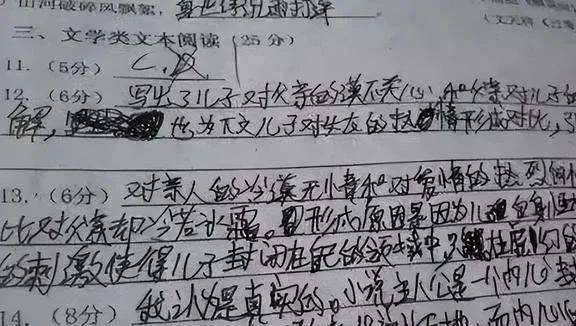 山河破碎风飘絮，身世浮沉雨打萍
三、文学类文本阅读（25分）
11.（5分） C、
12.（6分） 写出了儿子对父亲的漠不关心，和父亲对儿子的
解， 也为下文儿子对女友的热情形成对比，
13.（6分） 对亲人的冷漠无情和对爱情的热烈
比对父亲却冷若冰霜。形成原因是因为儿
的刺激使得儿子封闭在自己的领域中，只
14.（8分） 我认为是真实的。小说主人公是一个内心封